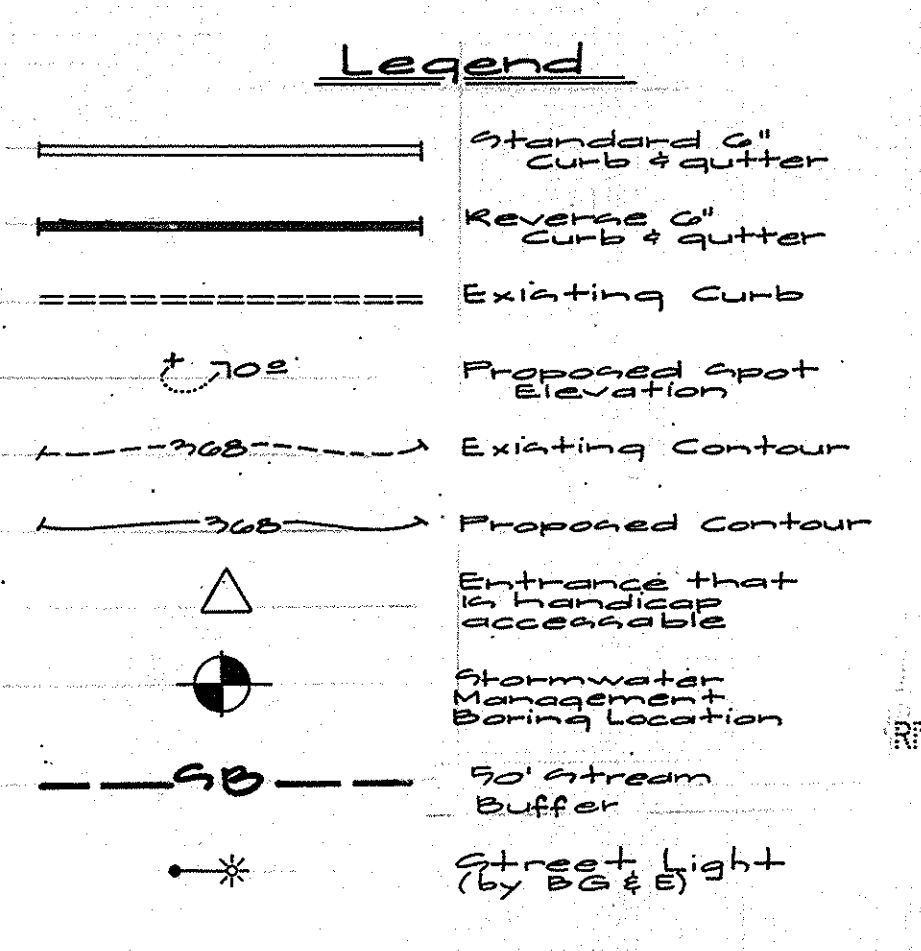 Legend
Standard 6"
Curb & gutter
Reverse 6"
Curb & gutter
Existing Curb
+ 70º
Proposed Spot
Elevation
368
Existing Contour
368
Proposed Contour
Entrance that
is handicap
accessable
Stormwater
Management
Boring Location
SB
50' Stream
Buffer
Street Light
(by BG & E)